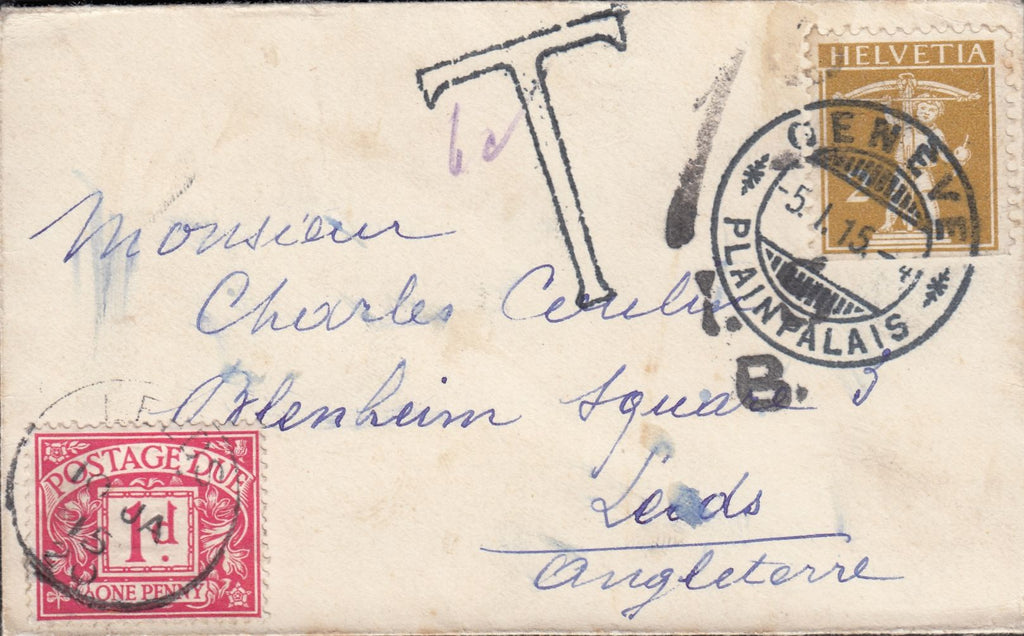 T
HELVETIA
2
GENÈVE
-5.I.15.-4
PLAINPALAIS
1
I.
B.
Monsieur
Charles
Blenheim Square 3
Leeds
Angleterre
POSTAGE DUE
1d.
ONE PENNY
10 JA
15